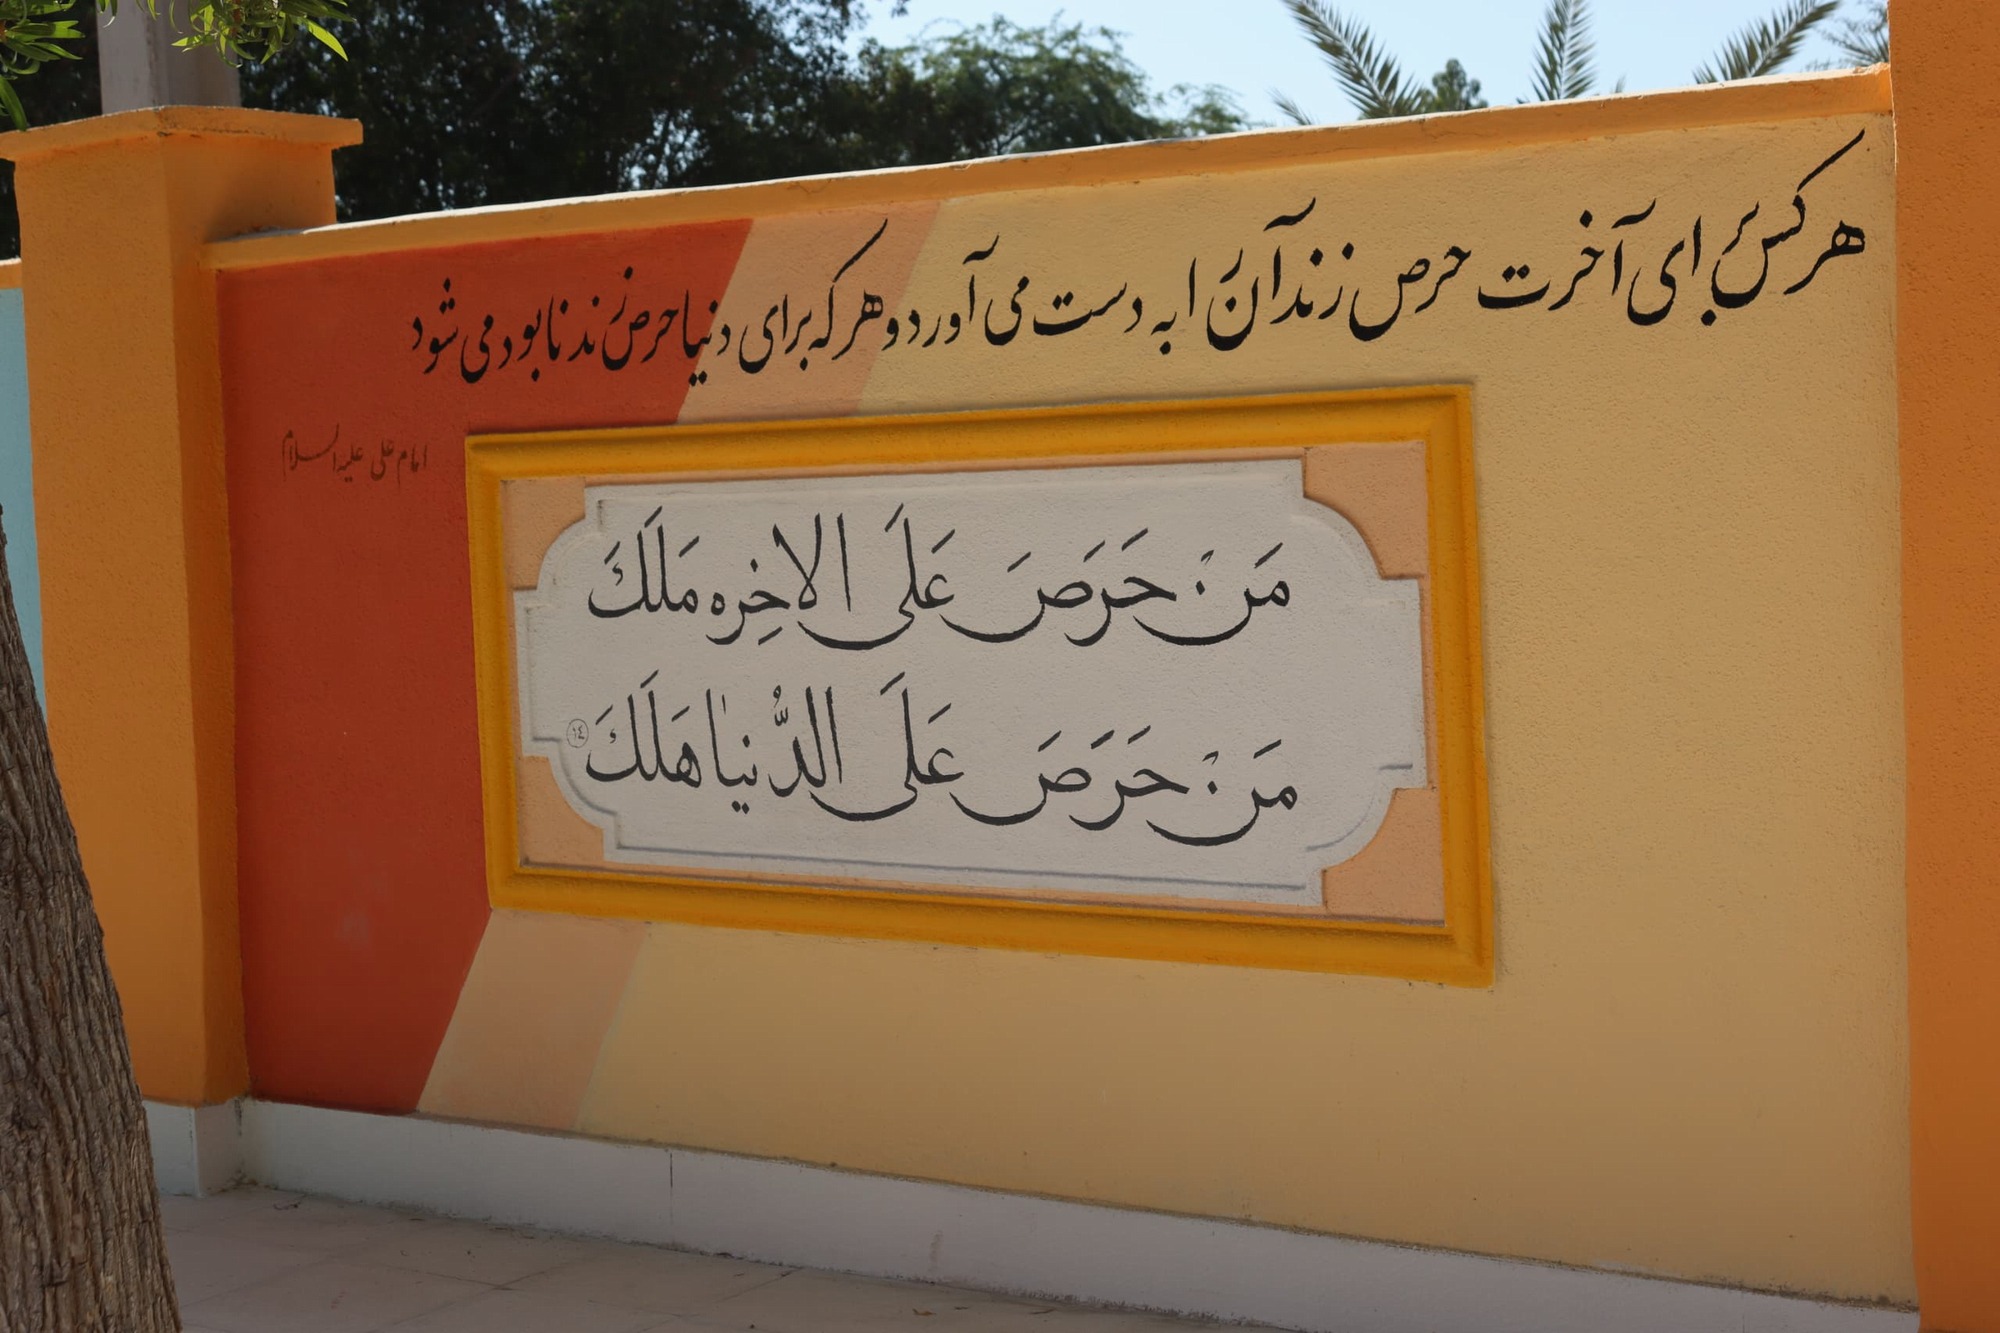 هر کس برای آخرت حرص زند آن را به دست می آورد و هر که برای دنیا حرص زند نابود می شود
امام علی علیه السلام
مَنْ حَرَصَ عَلَى الاخِره مَلَكَ
مَنْ حَرَصَ عَلَى الدُّنيٰا هَلَكَ ١٤